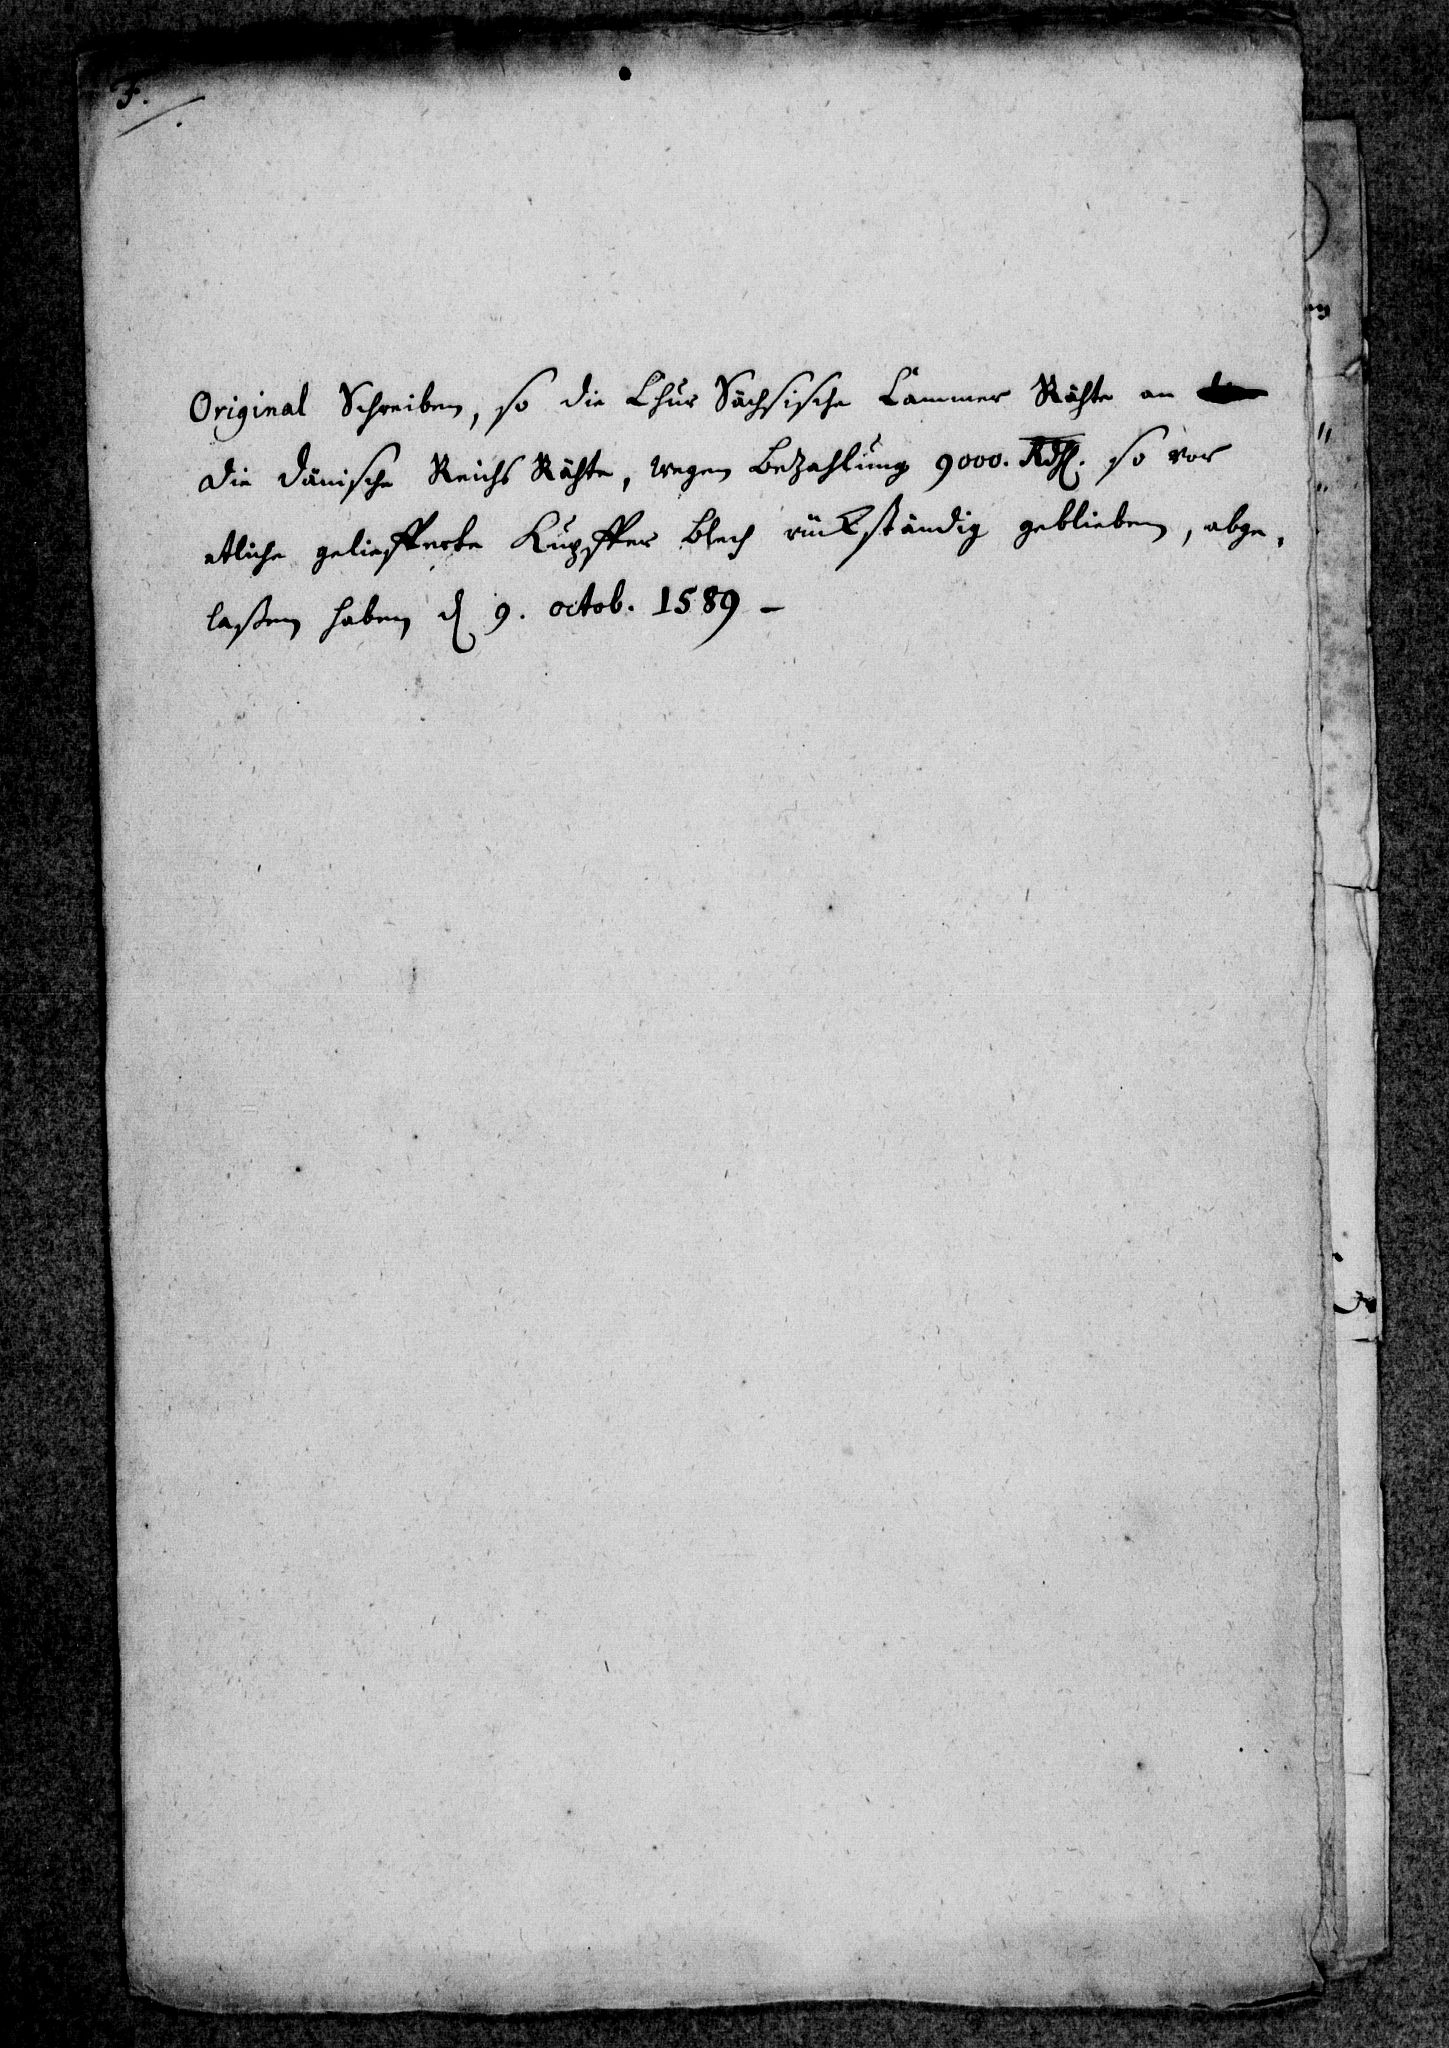 F.
Original Schreiben, so die Chur Sächsische Cammer Räthe an
die dänische Reichs Räthe, wegen Bezahlung 9000. Rdhl. so vor
etliche geliefferte Kupffer Blech rückständig geblieben, abge,
laßen haben d 9. octob. 1589 –